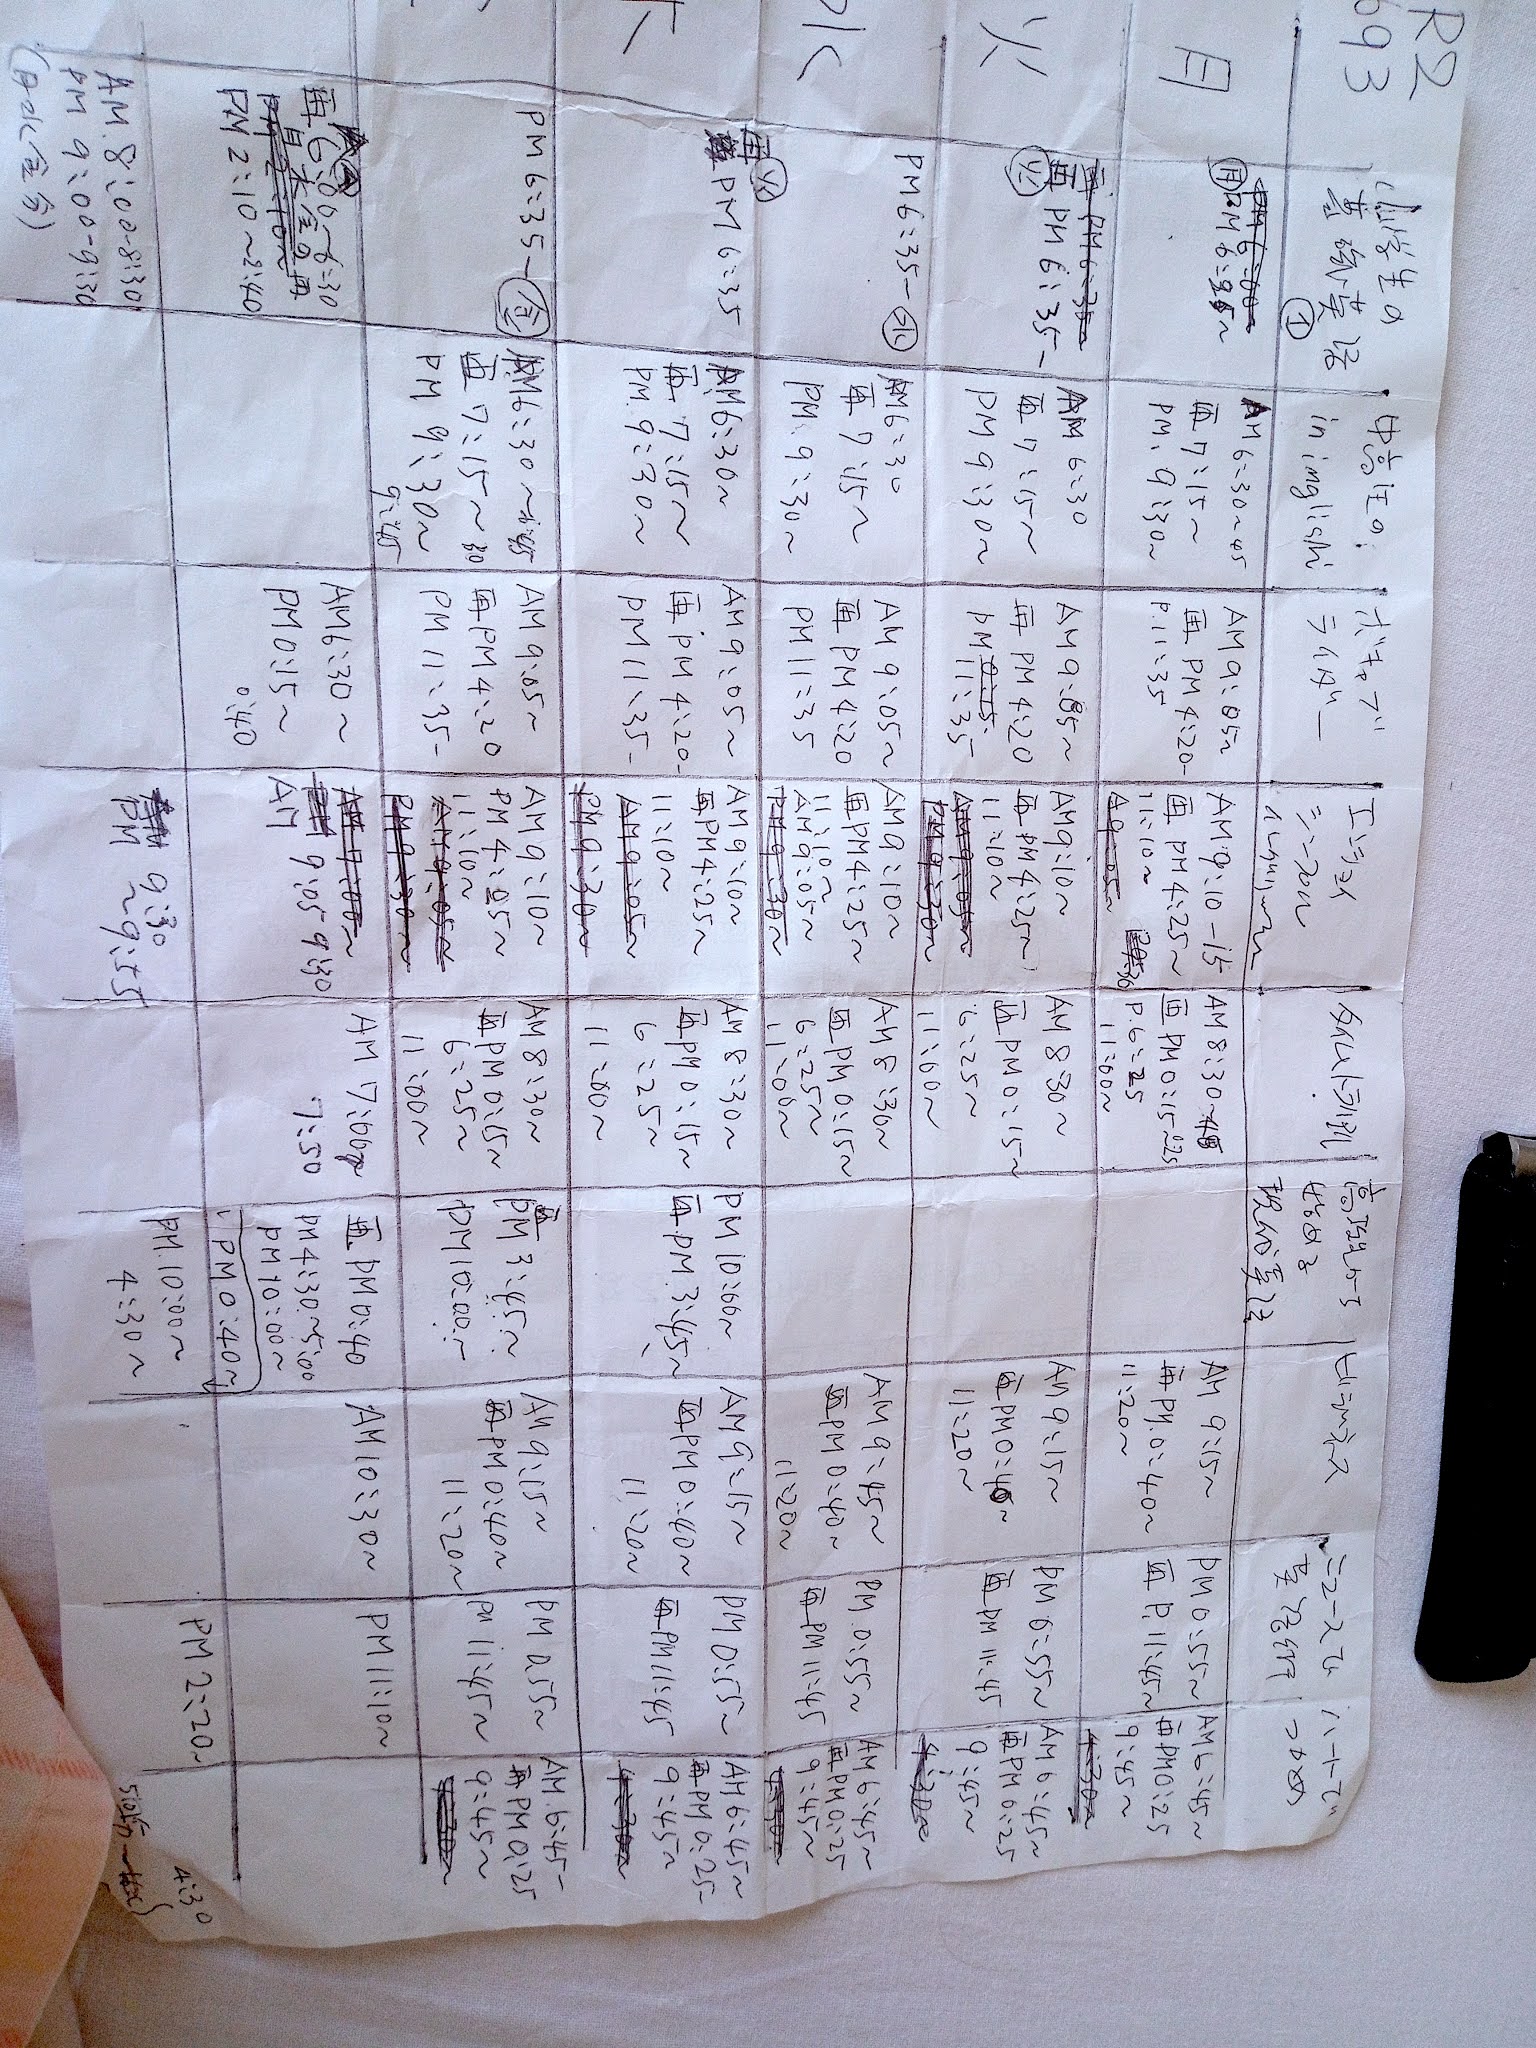 R2
693
小学生の
基礎英語
中高生の
in imglish
ボキャブ
ライダー
エンジョイ
シンプル
イングリッシュ
タイムトライアル
高校から
はじめる
現代英語
ビジネス
ニュースで
英語術
ハートで
つかめ
月
PM 6:35~
AM 6:30~6:45
再 7:15~
PM. 9:30~
AM 9:05~
再 PM 4:20-
P.11:35
AM 9:10-15
再 PM 4:25~
11:10~
A9:05
AM 8:30~
再 PM 0:15-
P.6:25
11:00~
AM 9:15~
再 PM.0:40~
11:20~
PM 0:55~
再 P.11:45~
AM 6:45~
再 PM 0:25
9:45~
4:30
火
再 PM 6:30
火
再 PM 6:35-
AM 6:30
再 7:15~
PM 9:30~
AM 9:05~
再 PM 4:20
PM 11:35
AM 9:10~
再 PM 4:25~
11:10~
AM 9:05~
PM 9:30~
AM 8:30~
再 PM 0:15~
6:25~
11:00~
AM 9:15~
再 PM 0:40~
11:20~
PM 0:55~
再 PM 11:45
AM 6:45~
再 PM 0:25
9:45~
4:30~
水
PM6:35- 水
AM6:30
再 7:15~
PM. 9:30~
AM 9:05~
再 PM 4:20
PM 11:35
AM 9:10~
再 PM4:25~
11:10~
AM 9:05~
PM 9:30~
AM 8:30~
再 PM 0:15~
6:25~
11:00~
AM 9:45~
再 PM 0:40~
11:20~
PM.0:55~
再 PM 11:45
AM 6:45~
再 PM 0:25
9:45~
木
火
再
PM 6:35
AM6:30~
再 7:15~
PM. 9:30~
AM 9:05~
再 PM 4:20-
PM 11:35-
AM 9:10~
再 PM4:25~
11:10~
AM 9:05
PM 9:30~
AM 8:30~
再 PM 0:15~
6:25~
11:00~
PM 10:00~
再 PM 3:45~
AM 9:15~
再 PM 0:40~
11:20~
PM 0:55~
再 PM 11:45
AM 6:45~
再 PM 0:25-
9:45~
4:30~
PM 6:35- 金
AM6:30~6:45
再 7:15~30
PM 9:30~
9:45
AM 9:05~
再 PM 4:20
PM 11:35-
AM 9:10~
PM 4:05~
11:10~
AM 9:05~
PM 9:30~
AM 8:30~
再 PM 0:15~
6:25~
11:00~
再
PM 3:45~
PM 10:00~
AM 9:15~
再 PM 0:40~
11:20~
PM 0:55~
PM 11:45~
AM.6:45-
再 PM 0:25
9:45~
再 6:00~6:30
PM 2:10~
PM 2:10~2:40
AM6:30~
PM0:15~
0:40
AM 9:00~
AM 9:05 9:30
AM 7:00~
7:50
再 PM 0:40
PM 4:30~5:00
PM 10:00~
PM 0:40~
AM 10:30~
PM 11:10~
AM. 8:00-8:30
PM 9:00-9:30
PM 9:30
~9:55
PM.10:00~
4:30~
PM 2:20~
4:30